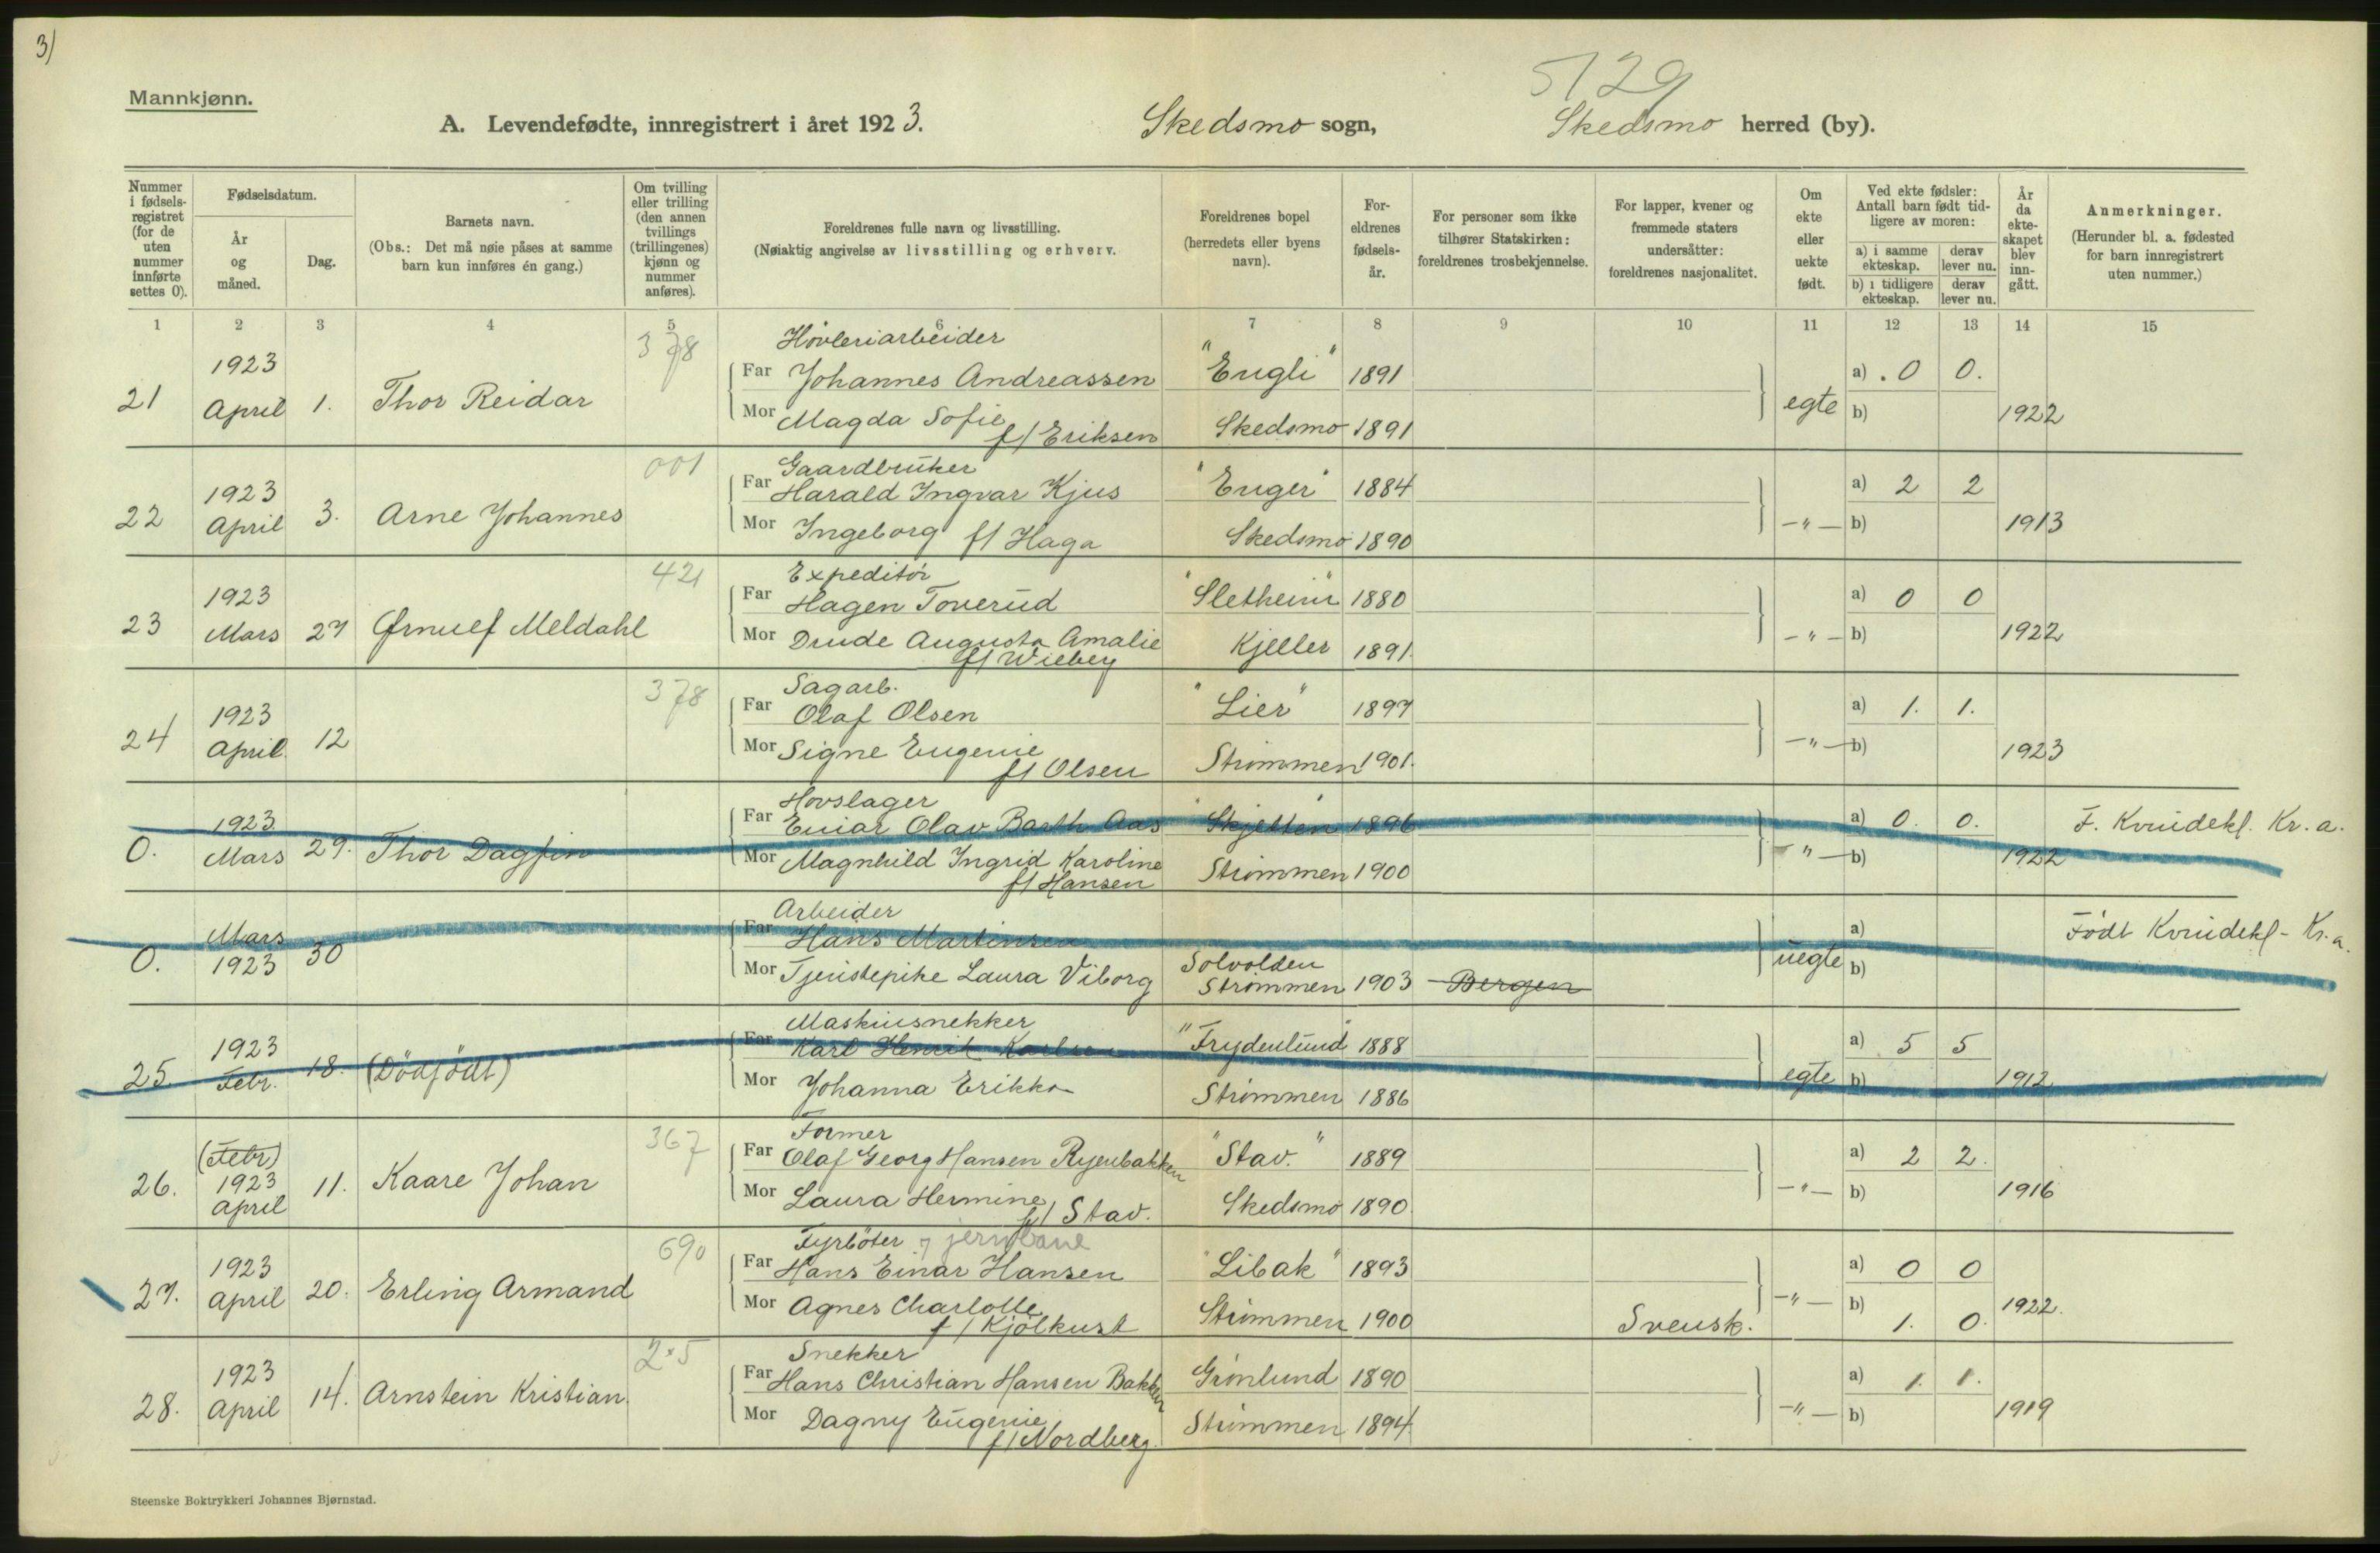 3)
5129
Mannkjønn.
A. Levendefødte, innregistrert i året 1923. Skedsmo sogn, Skedsmo herred (by).
Nummer i fødsels-registret (for de uten nummer innførte settes 0).
Fødselsdatum.
År og måned.
Dag.
Barnets navn.
(Obs.: Det må nøie påses at samme barn kun innføres én gang.)
Om tvilling eller trilling (den annen tvillings (trillingenes) kjønn og nummer anføres).
Foreldrenes fulle navn og livsstilling.
(Nøiaktig angivelse av livsstilling og erhverv.
Foreldrenes bopel (herredets eller byens navn).
For-eldrenes fødsels-år.
For personer som ikke tilhører Statskirken: foreldrenes trosbekjennelse.
For lapper, kvener og fremmede staters undersåtter: foreldrenes nasjonalitet.
Om ekte eller uekte født.
Ved ekte fødsler: Antall barn født tid-ligere av moren:
a) i samme ekteskap. derav lever nu.
b) i tidligere ekteskap. derav lever nu.
År da ekte-skapet blev inn-gått.
Anmerkninger.
(Herunder bl. a. fødested for barn innregistrert uten nummer.)
1 2 3 4 5 6 7 8 9 10 11 12 13 14 15
378 Høvleriarbeider
21 1923 April 1. Thor Reidar Far Johannes Andreassen "Engli" 1891 egte a) 0 0.
Mor Magda Sofie f/ Eriksen Skedsmo 1891 b) 1922
001 Gaardbruker
22 1923 April 3. Arne Johannes Far Harald Ingvar Kjus "Enger" 1884 -"- a) 2 2
Mor Ingeborg f/ Haga Skedsmo 1890 b) 1913
421 Expeditör
23 1923 Mars 27 Ørnulf Meldahl Far Hagen Toverud "Sletheim" 1880 -"- a) 0 0
Mor Drude Augusta Amalie f/ Wiebey Kjeller 1891. b) 1922
378 Sagarb.
24 1923 April 12 Far Olaf Olsen "Lier" 1897 -"- a) 1. 1.
Mor Signe Eugenie f/ Olsen Strömmen 1901. b) 1923
Hovslager
0. 1923 Mars 29. Thor Dagfin Far Einar Olav Barth Aas "Skjetten" 1896 -"- a) 0. 0. F. Kvindekl. Kr.a.
Mor Magnhild Ingrid Karoline f/ Hansen Strömmen 1900 b) 1922
Arbeider
0. Mars 1923 30 Far Hans Martinsen uegte a) Födt Kvindekl- Kr.a.
Mor Tjenestepike Laura Viborg Solvolden Strömmen 1903 Bergen b)
Maskinsnekker
25 1923 Febr. 18. (Dödfödt) Far Karl Henrik Karlsen "Frydenlund" 1888 egte a) 5 5
Mor Johanna Erikka Strömmen 1886 b) 1912
367 Former
26. (Febr) 1923 April 11. Kaare Johan Far Olaf Georg Hansen Ryenbakken "Stav." 1889 -"- a) 2 2.
Mor Laura Hermine f/ Stav. Skedsmo 1890 b) 1916
690 Fyrböter jernbane
27. 1923 April 20. Erling Armand Far Hans Einar Hansen "Libak" 1893 -"- a) 0 0
Mor Agnes Charlotte f/ Kjölkust Strömmen 1900 Svensk. b) 1. 0. 1922.
Snekker
28. 1923 April 14. Arnstein Kristian. Far Hans Christian Hansen Bakken Grönlund 1890 -"- a) 1. 1.
Mor Dagny Eugenie f/ Nordberg. Strömmen 1894. b) 1919
Steenske Boktrykkeri Johannes Bjørnstad.